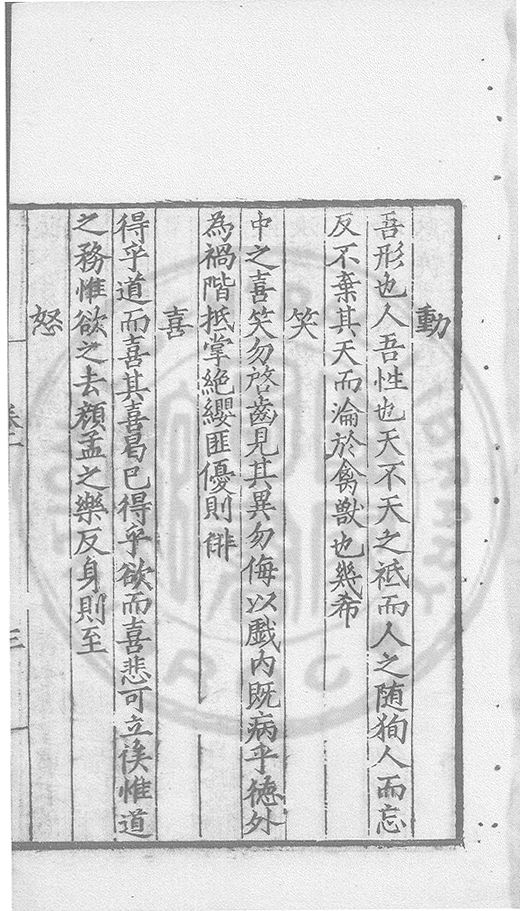 動
吾形也人吾性也天不天之祗而人之随狥人而忘
反不棄其天而淪於禽獸也幾希
笑
中之喜笑勿啓齒見其異勿侮以戲内既病乎德外
為禍階抵掌絶纓匪優則俳
喜
得乎道而喜其喜曷已得乎欲而喜悲可立俟惟道
之務惟欲之去顔孟之樂反身則至
怒